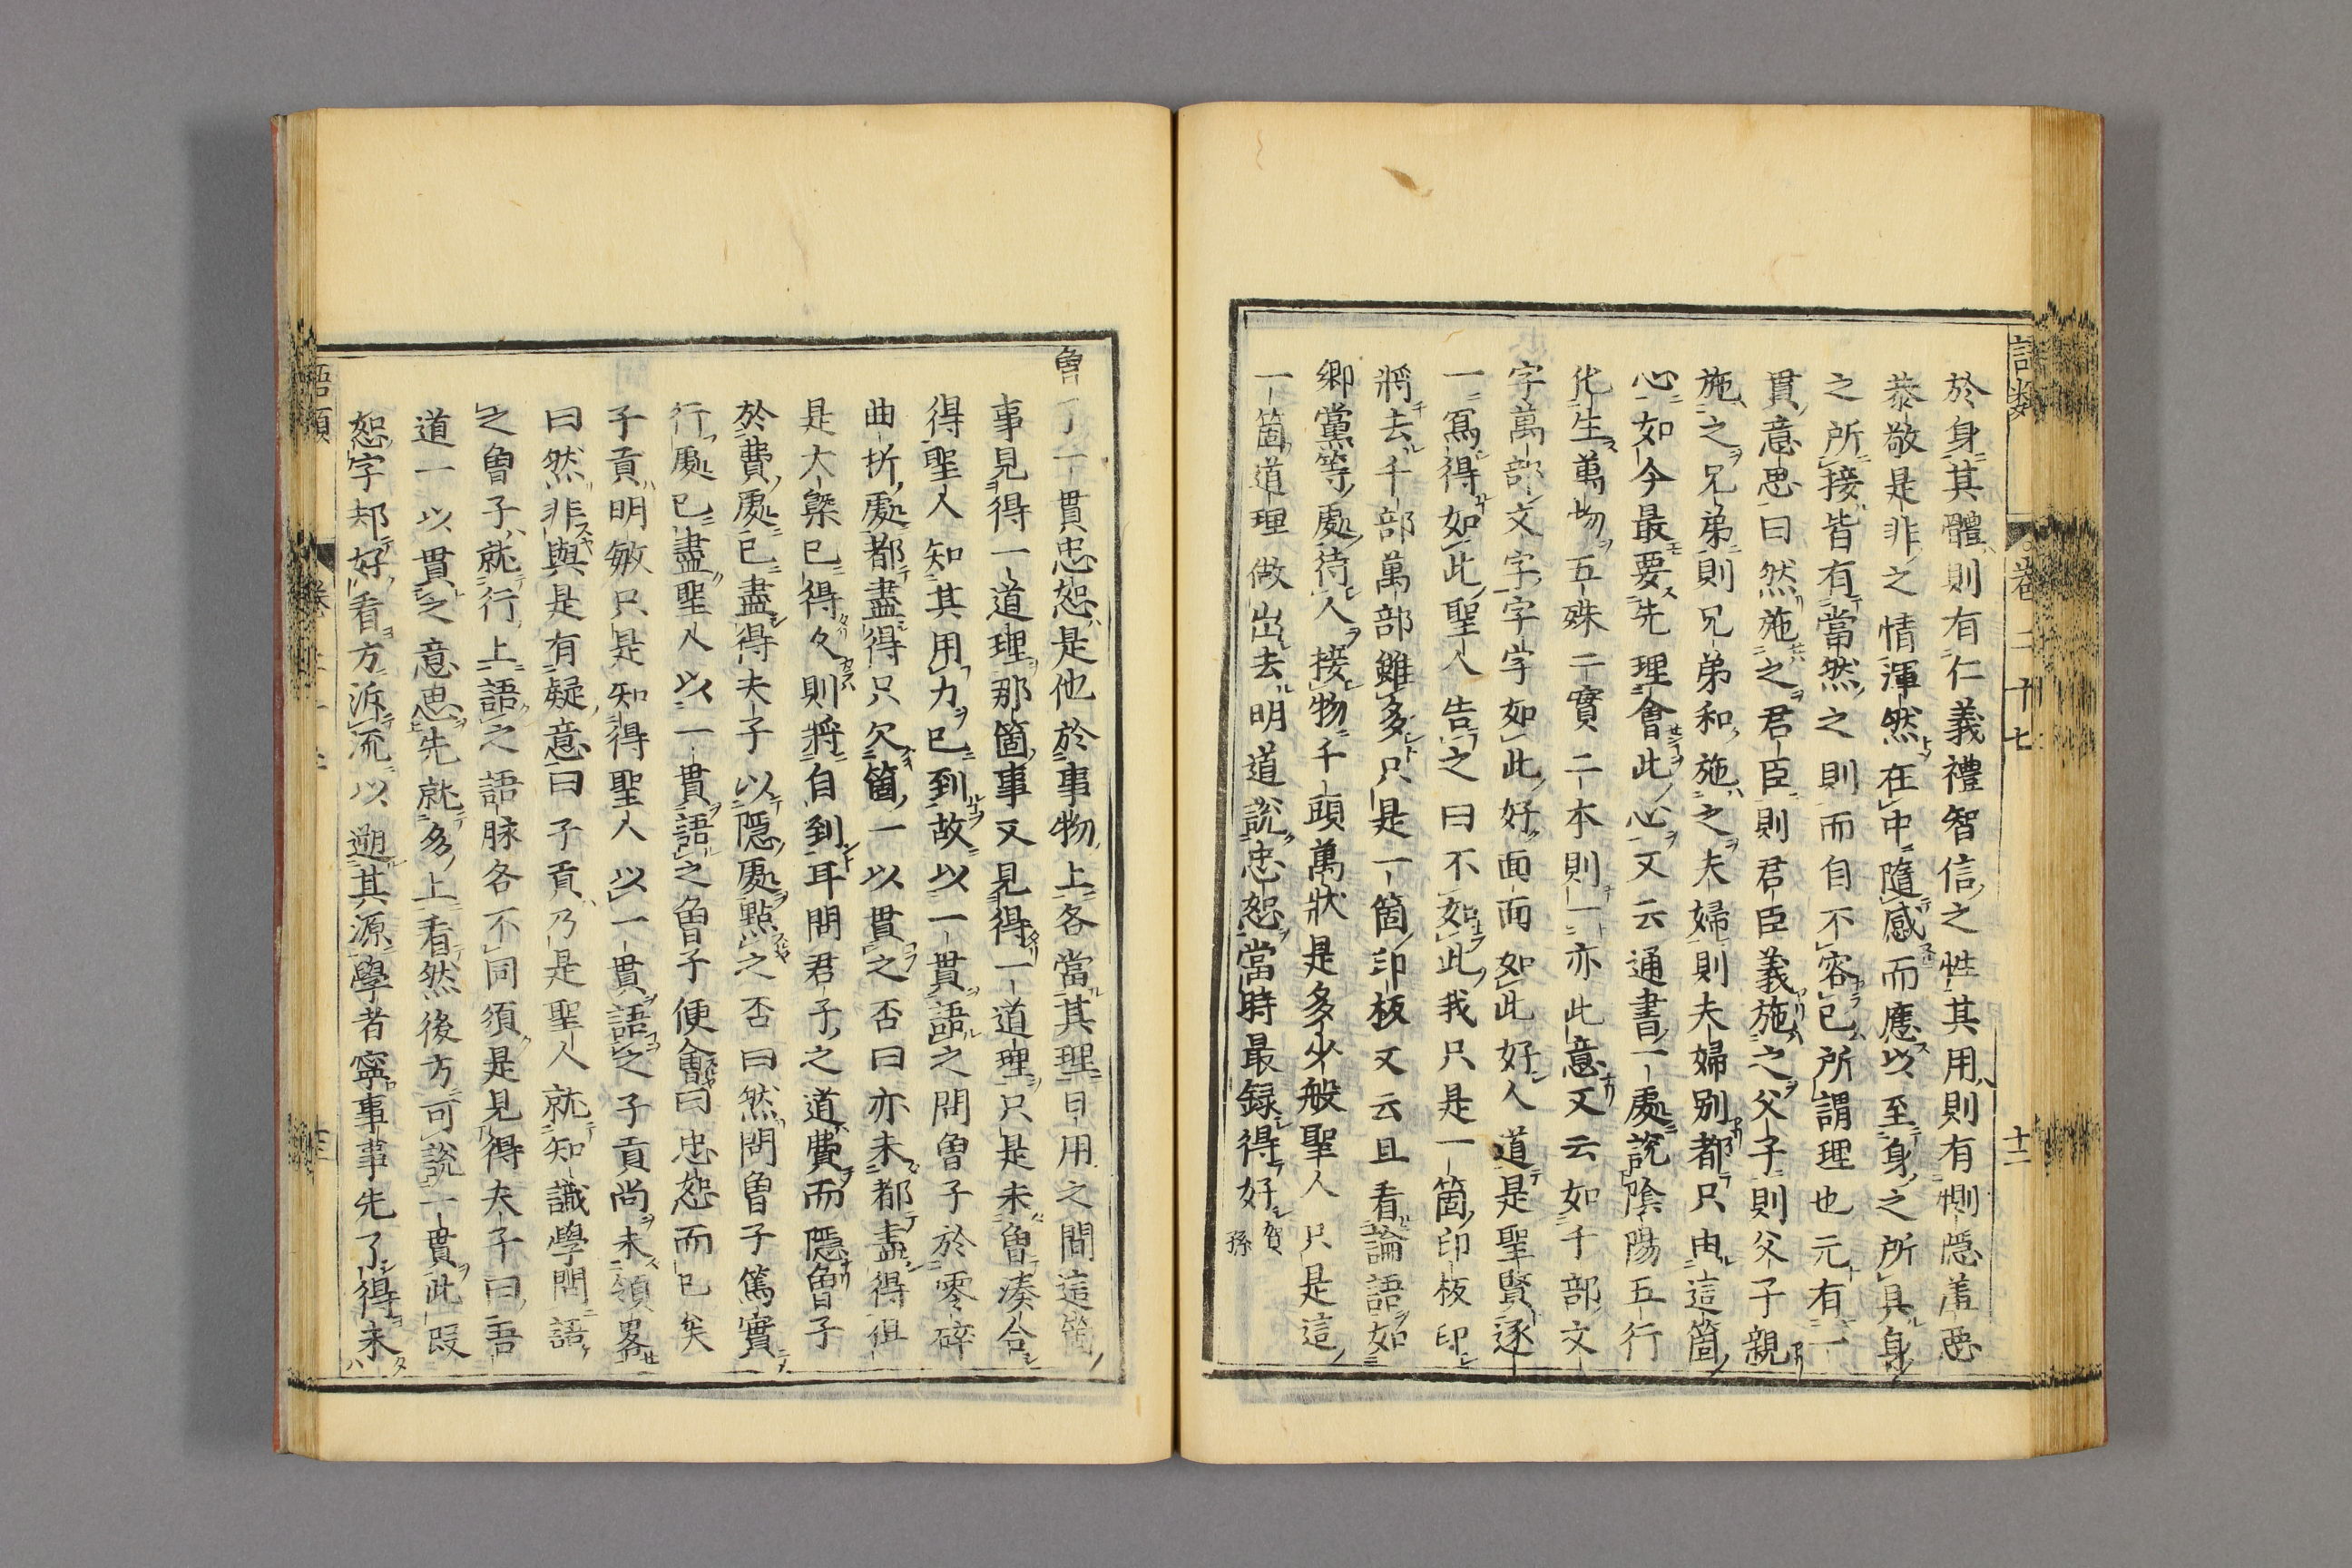 語類
卷二十七
十二
於身其體則有仁義禮智信之性其用則有惻隱羞惡
恭敬是非之情渾然在中隨感而應以至身之所具身
之所接皆有當然之則而自不容已所謂理也元有一
貫意思曰然施之君臣則君臣義施之父子則父子親
施之兄弟則兄弟和施之夫婦則夫婦別都只由這箇
心如今最要先理會此心又云通書一處說陰陽五行
化生萬物五殊二實二本則一亦此意又云如千部文
字萬部文字字字如此好面面如此好人道是聖賢逐
一寫得如此聖人告之曰不如此我只是一箇印板印
將去千部萬部雖多只是一箇印板又云且看論語如
鄉黨等處待人接物千頭萬狀是多少般聖人只是這
一箇道理做出去明道說忠恕當時最錄得好 賀孫
曾了一貫忠恕是他於事物上各當其理日用之間這箇
事見得一道理那箇事又見得一道理只是未曾湊合
得聖人知其用力已到故以一貫語之問曾子於零碎
曲折處都盡得只欠箇一以貫之否曰亦未都盡得但
是大槩已得久則將自到耳問君子之道費而隱曾子
於費處已盡得夫子以隱處點之否曰然問曾子篤實
行處已盡聖人以一貫語之曾子便會曰忠恕而已矣
子貢明敏只是知得聖人以一貫語之子貢尚未領畧
曰然非與是有疑意曰子貢乃是聖人就知識學問語
之曾子就行上語之語脉各不同須是見得夫子曰吾
道一以貫之意思先就多上看然後方可說一貫此段
恕字却好看方泝流以遡其源學者寧事事先了得未
語類